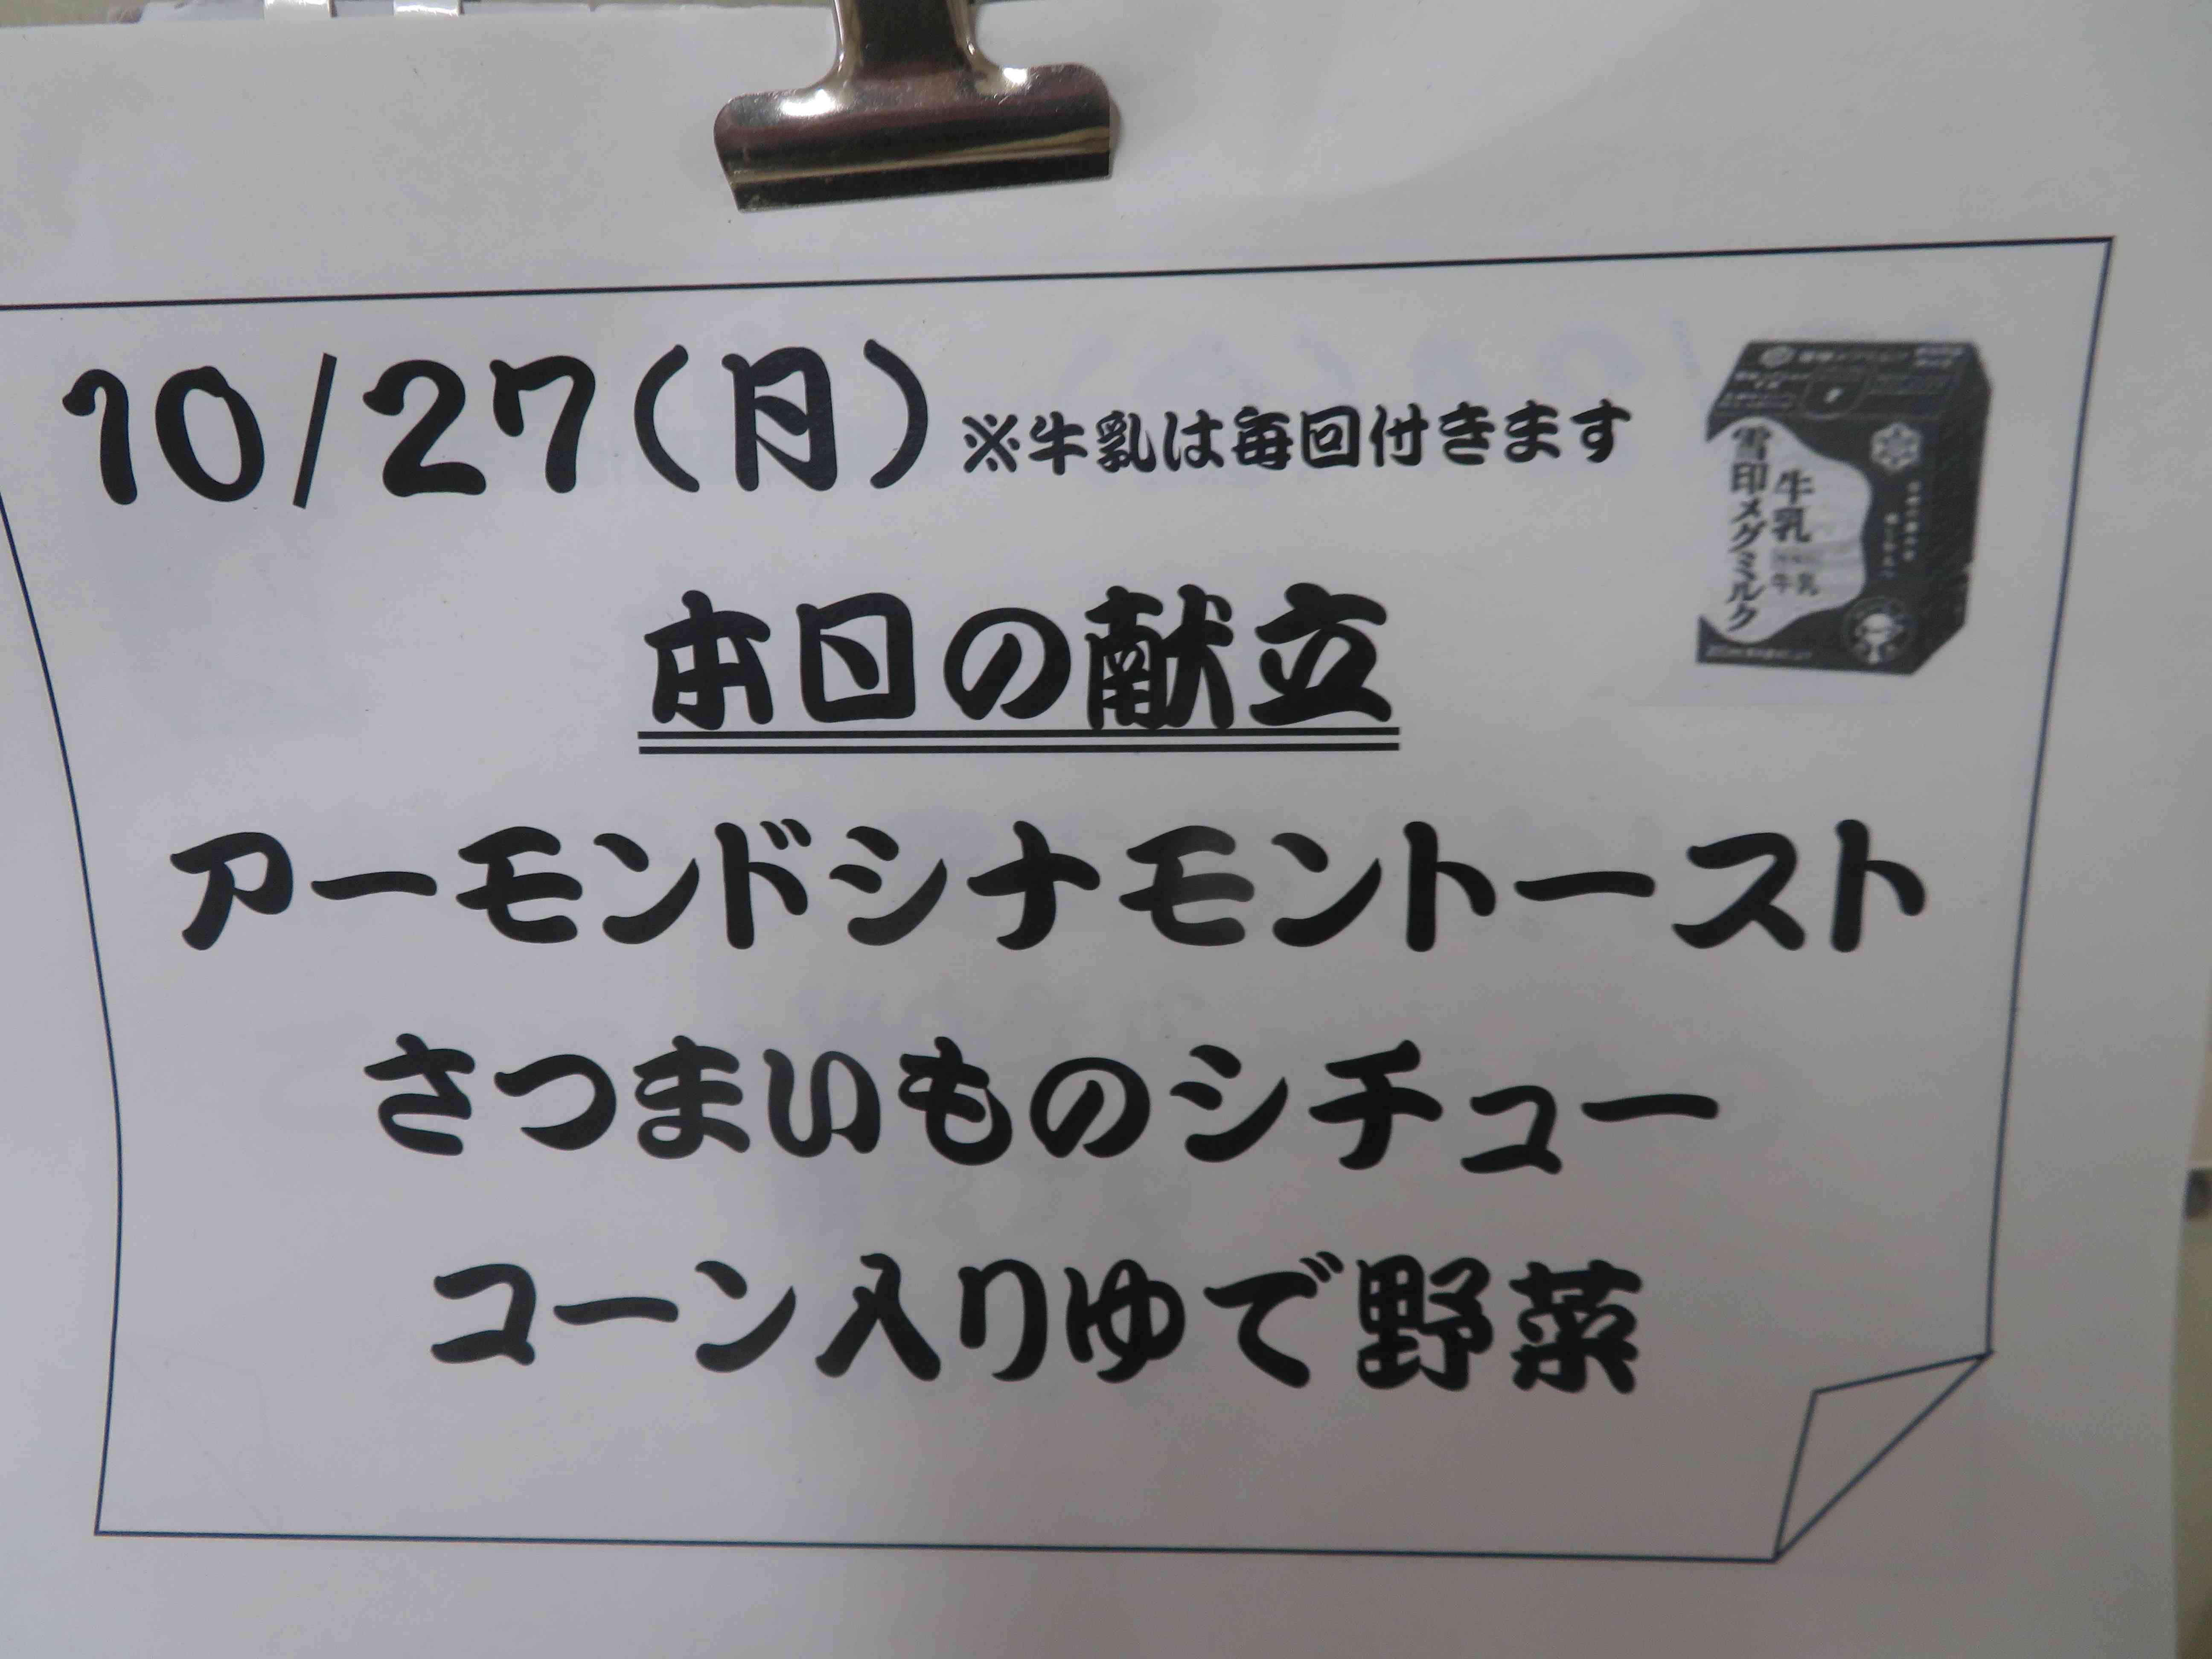 10/27(月)※牛乳は毎回付きます
雪印メグミルク
牛乳
牛乳
本日の献立
アーモンドシナモントースト
さつまいものシチュー
コーン入りゆで野菜